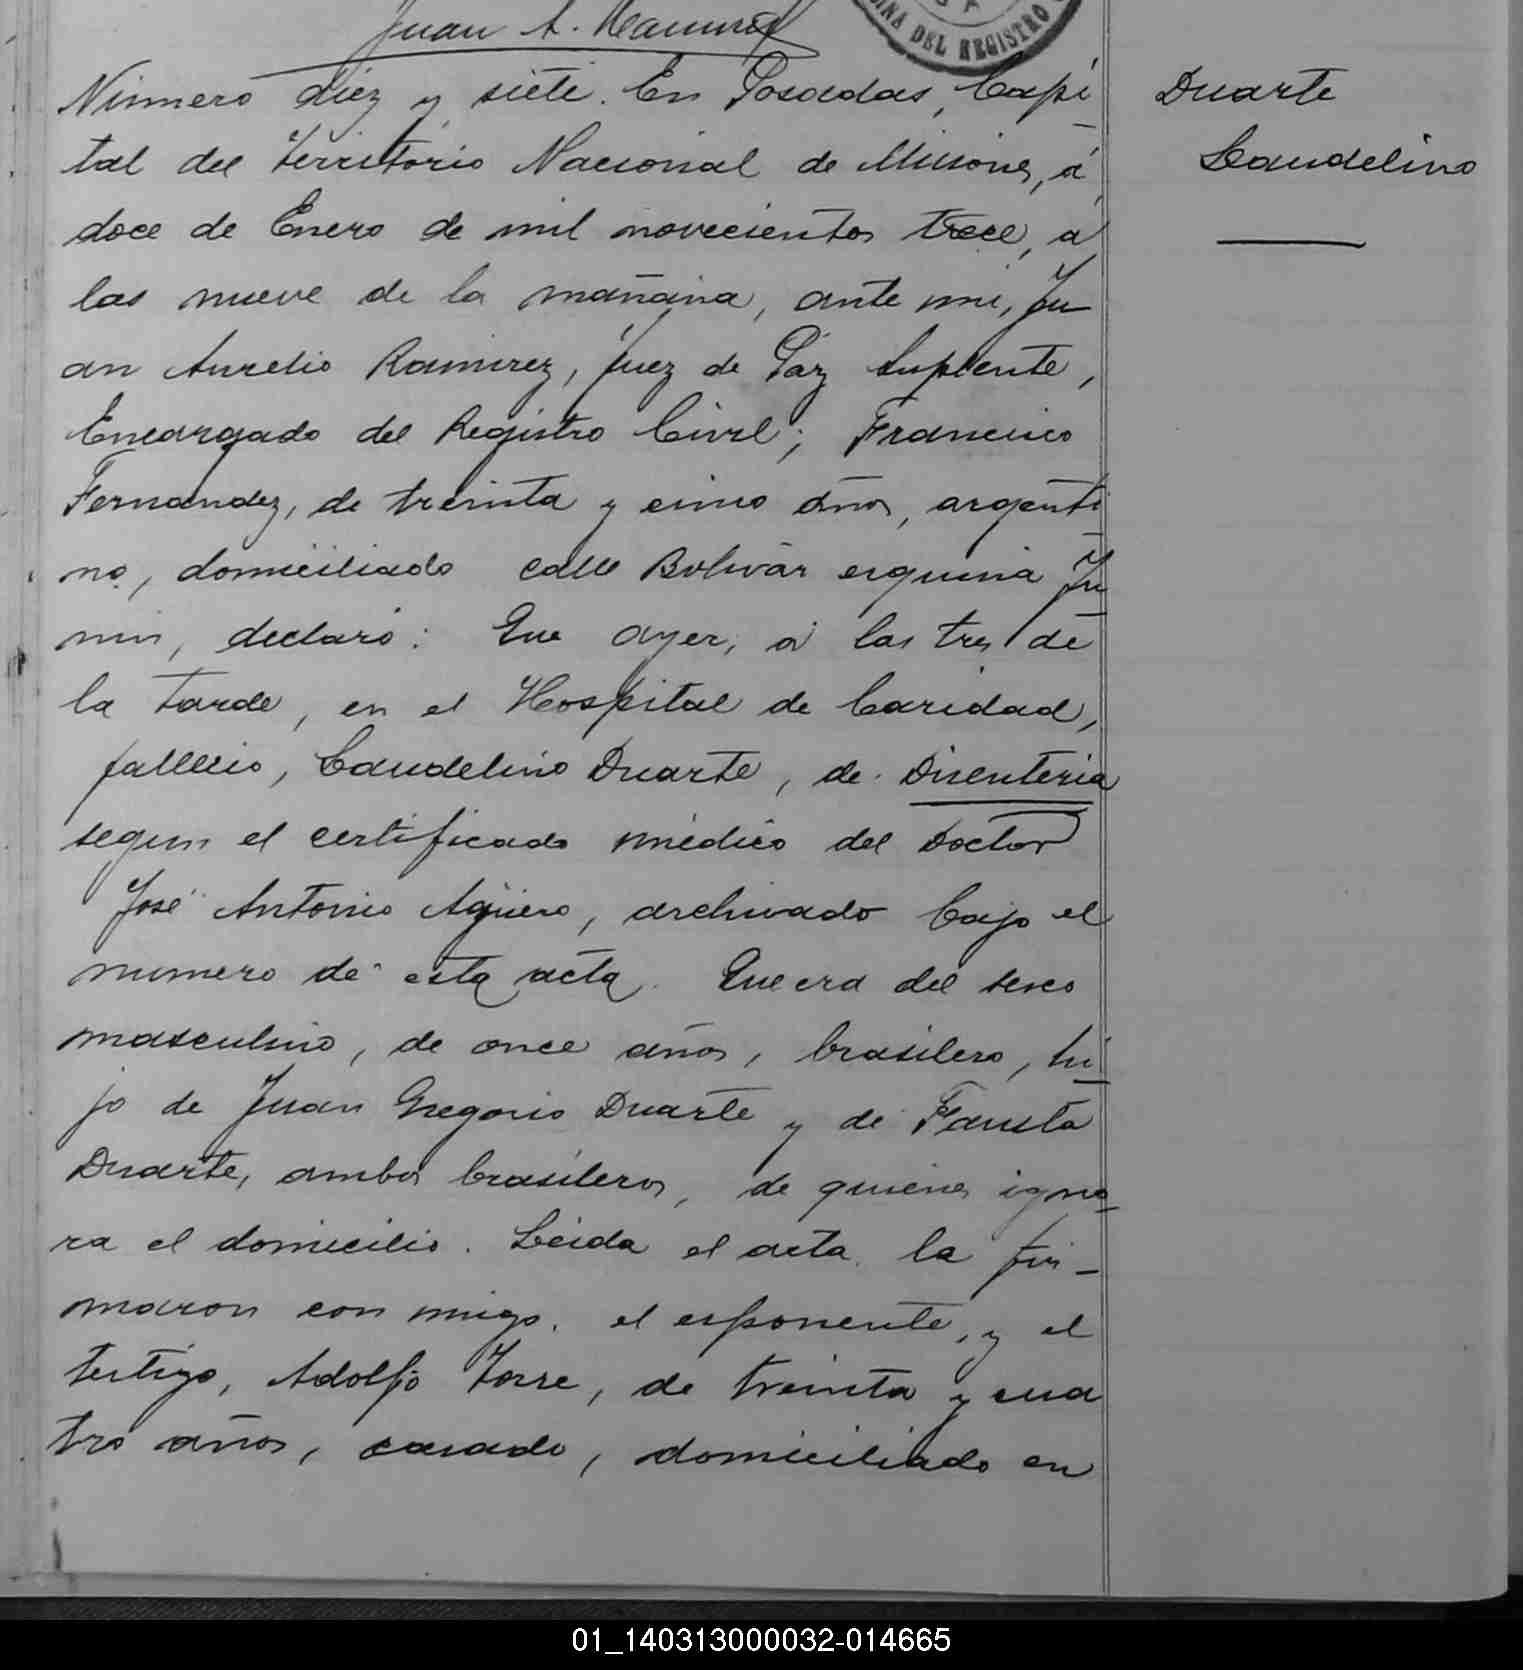 Juan A. Ramirez
OFICINA DEL REGISTRO
Número diez y siete. En Posadas, Capi
tal del Territorio Nacional de Misiones, á
doce de Enero de mil novecientos trece, á
las nueve de la mañana, ante mi, Ju
an Aurelio Ramirez, Juez de Paz Suplente,
Encargado del Registro Civil; Francisco
Fernandez, de treinta y cinco años, argenti
no, domiciliado calle Bolivar esquina Ju
nin, declaró: Que ayer, á las tres de
la tarde, en el Hospital de Caridad,
falleció, Candelino Duarte, de Disenteria
segun el certificado médico del Doctor
José Antonio Agüero, archivado bajo el
numero de esta acta. Que era del sexo
masculino, de once años, brasilero, hi
jo de Juan Gregorio Duarte y de Fausta
Duarte, ambos brasileros, de quienes igno-
ra el domicilio. Leida el acta la fir-
maron con migo, el esponente, y el
testigo, Adolfo Torre, de treinta y cua
tro años, casado, domiciliado en
Duarte
Candelino
01_140313000032-014665